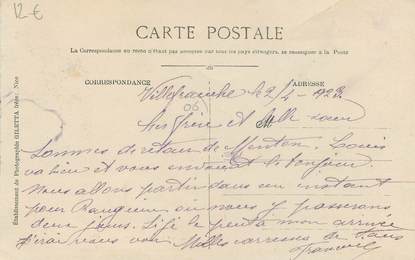 12 €
CARTE POSTALE
La Correspondance au recto n'étant pas acceptée par tous les pays étrangers, se renseigner à la Poste
CORRESPONDANCE
ADRESSE
Villefranche le 2/4 - 1923
06
frère et Belle soeur
Sommes de retour de Menton. Louis
va bien et vous envoie le bonjour
Nous allons partir dans un instant
pour où nous y passerons
deux jours. Si je peux à mon arrivée
j'irai vous voir Milles caresses de
Etablissement de Photographie GILETTA frères Nice